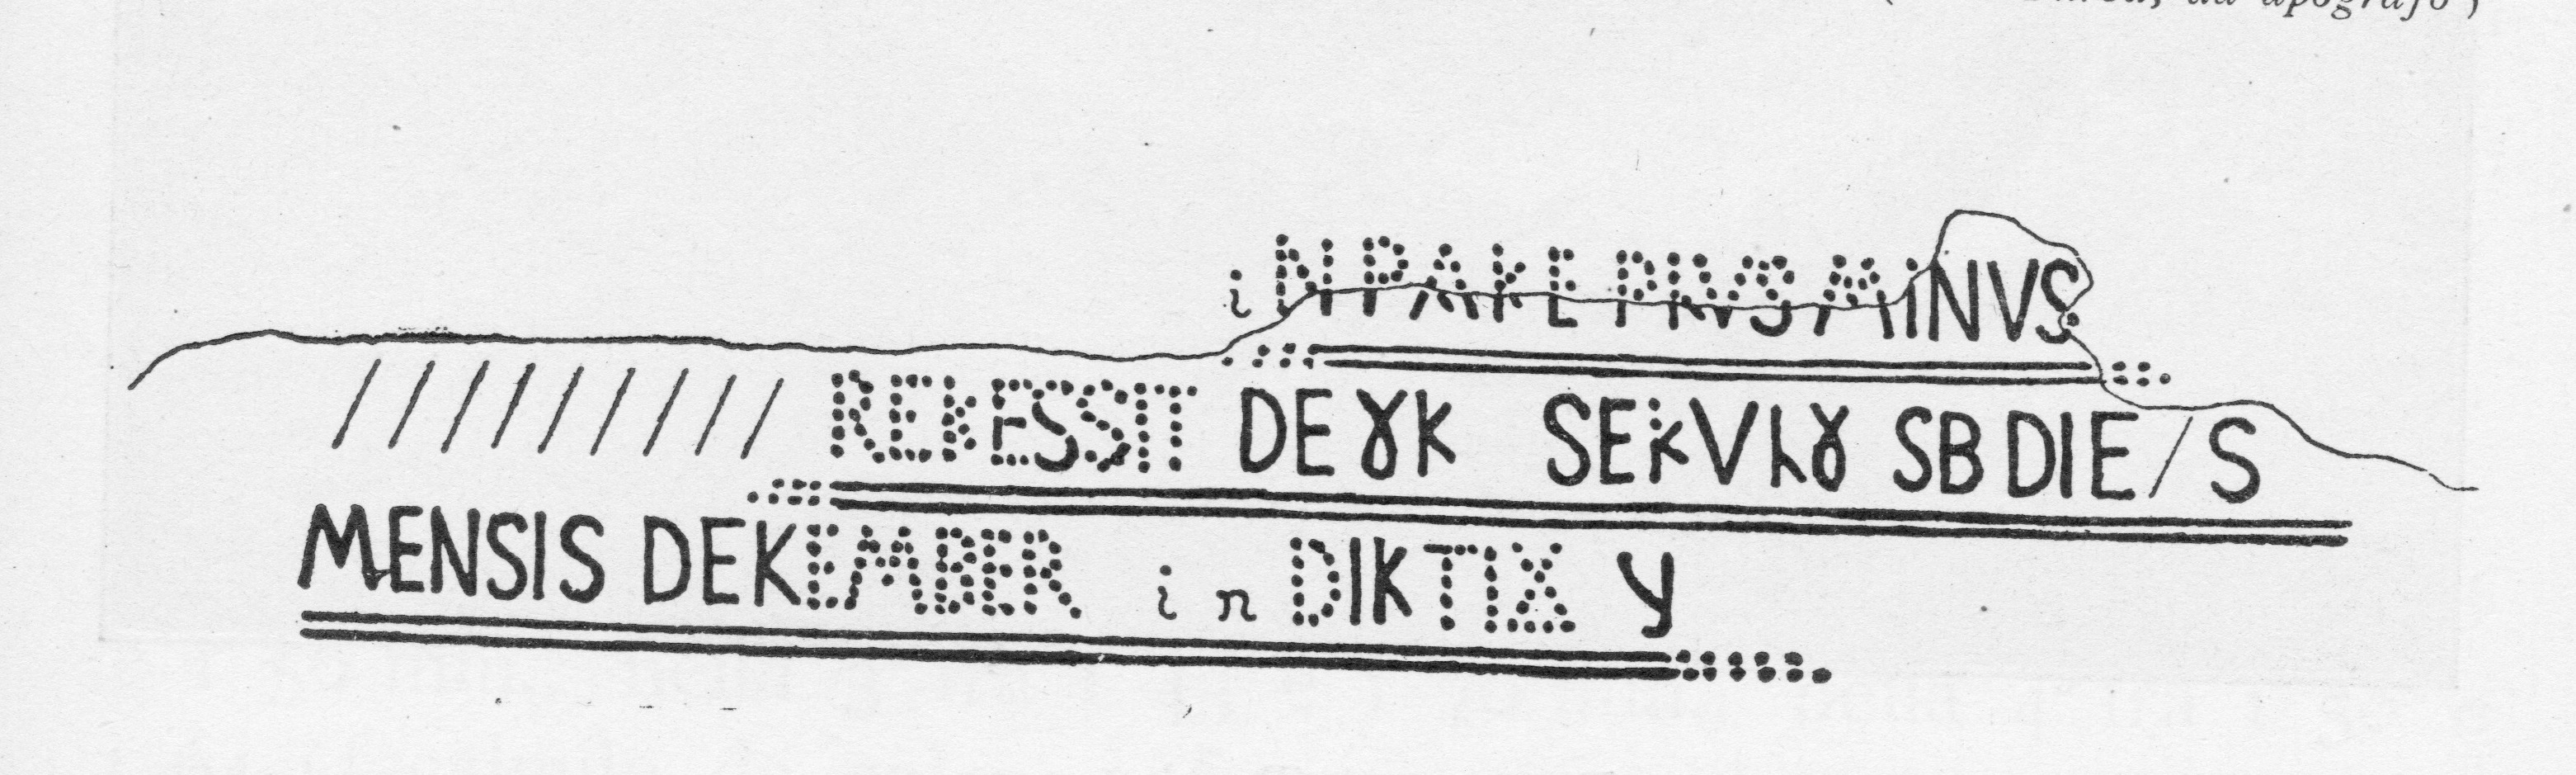 da apografo)
iN PAKE PLVS MiNVS
REKESSIT DE ɣK SEKVLɣ SB DIE/S
MENSIS DEKEMBER in DIKTIA y